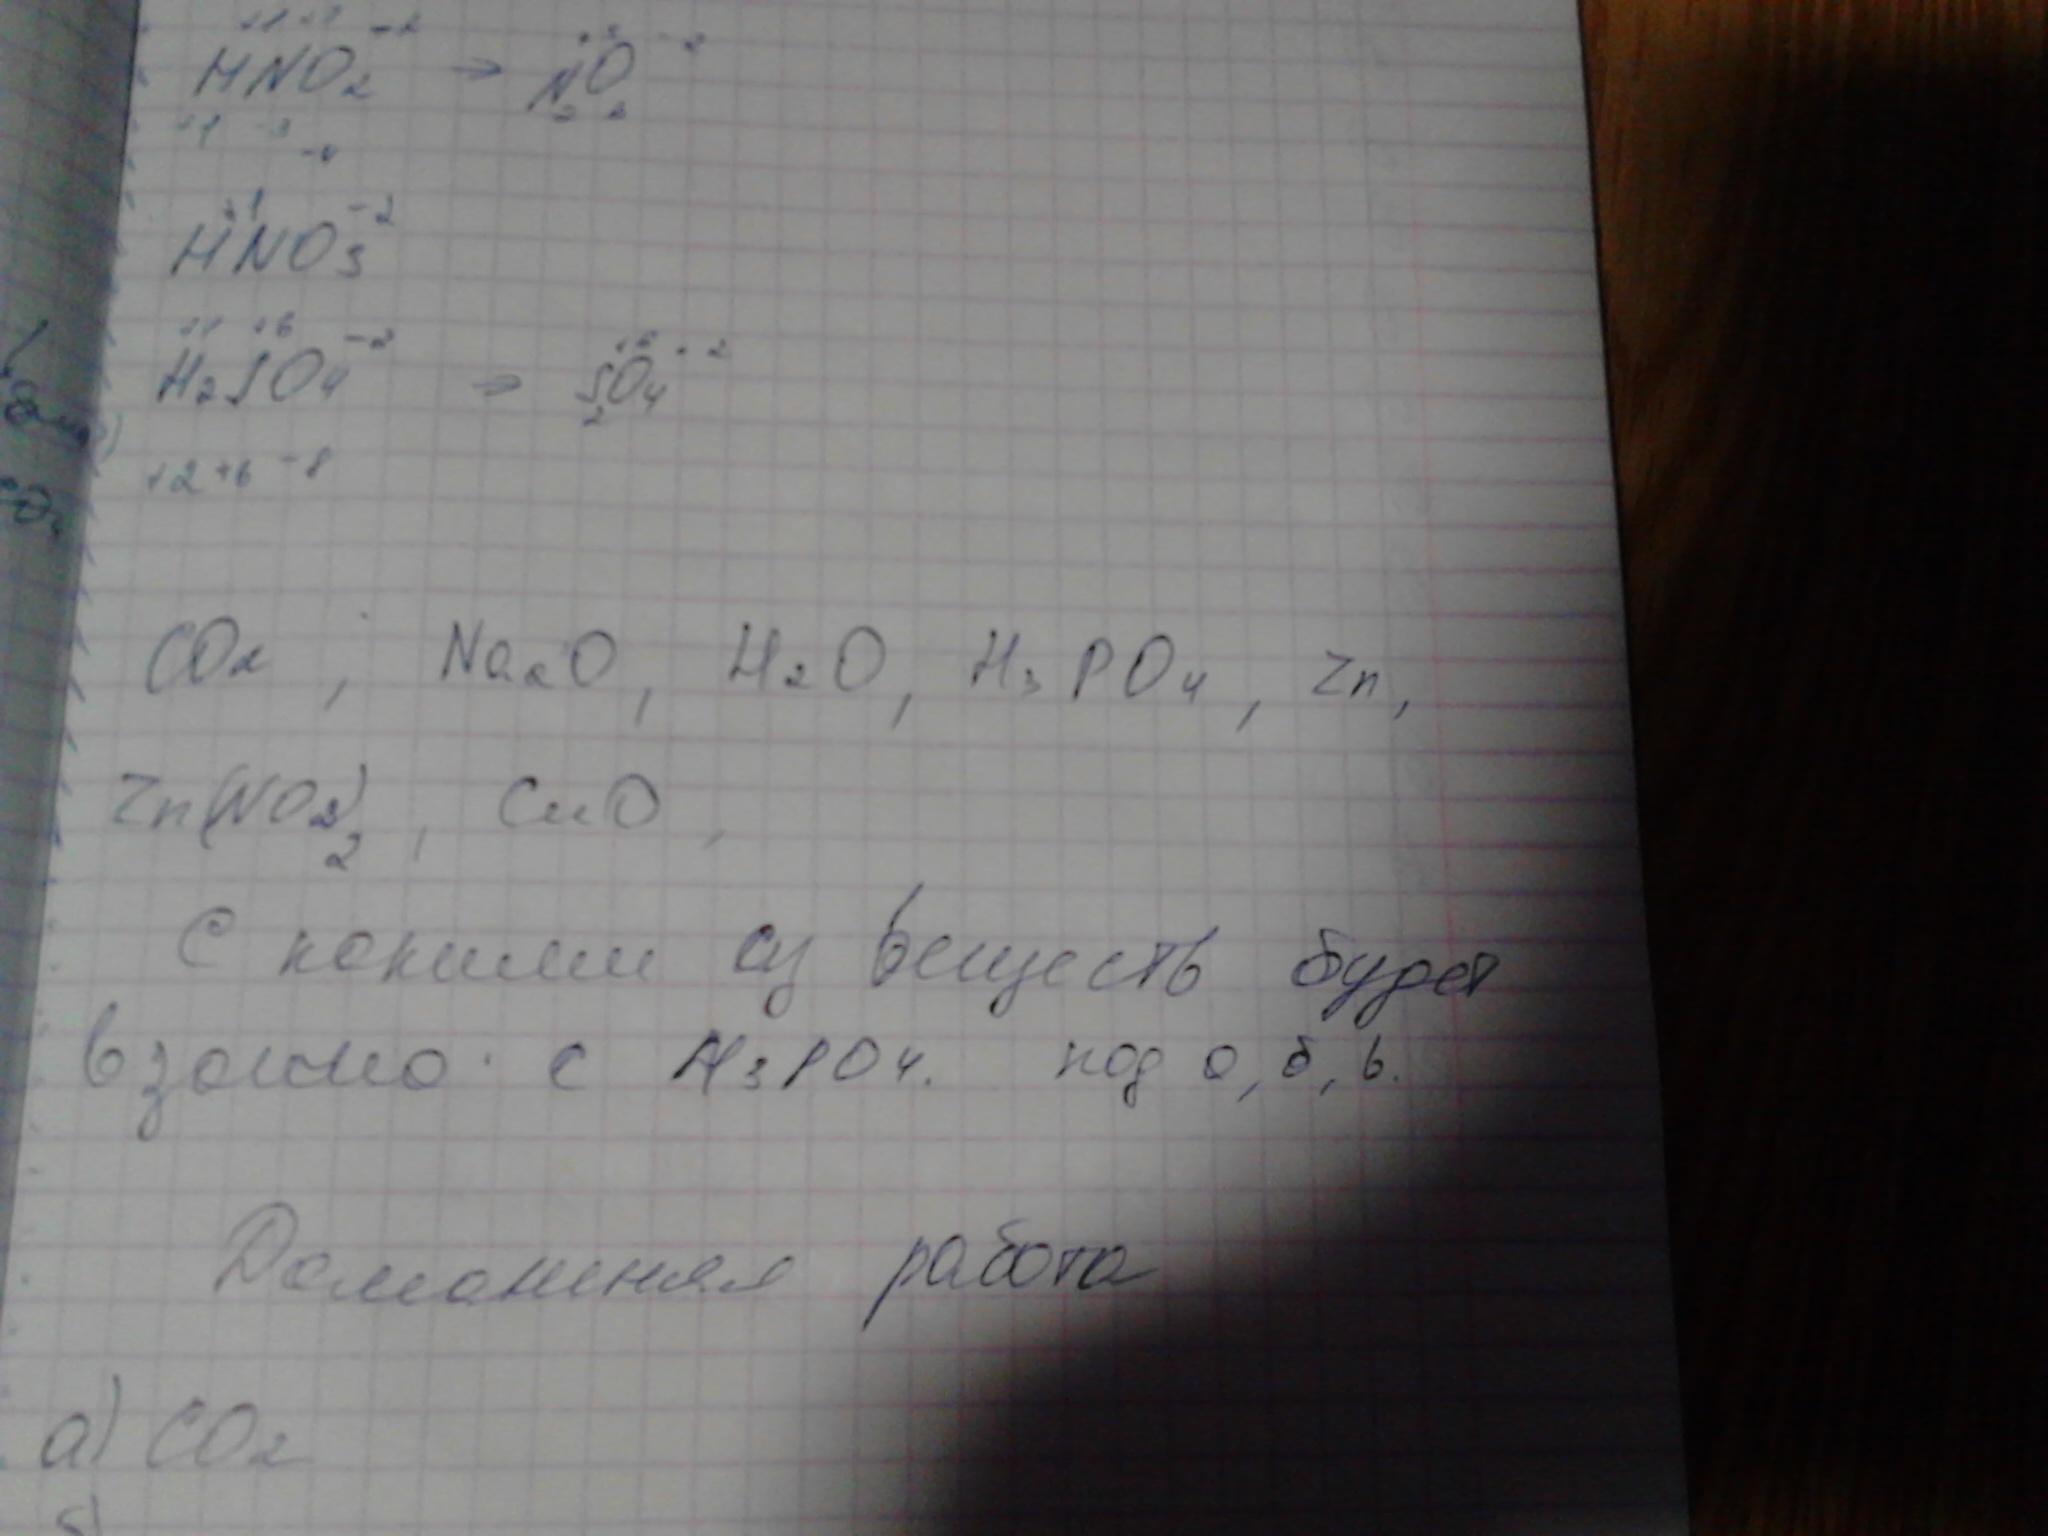 HNO2 → N2O2
+1 -3
-4
+1 -2
HNO3
+1 +6 -2
H2SO4 → S2O4
+2 +6 -8
CO2, Na2O, H2O, H3PO4, Zn,
Zn(NO2)2, CuO,
С какими из веществ будет
взаимо. с H3PO4. под а, б, в.
Домашняя работа
а) CO2
б)